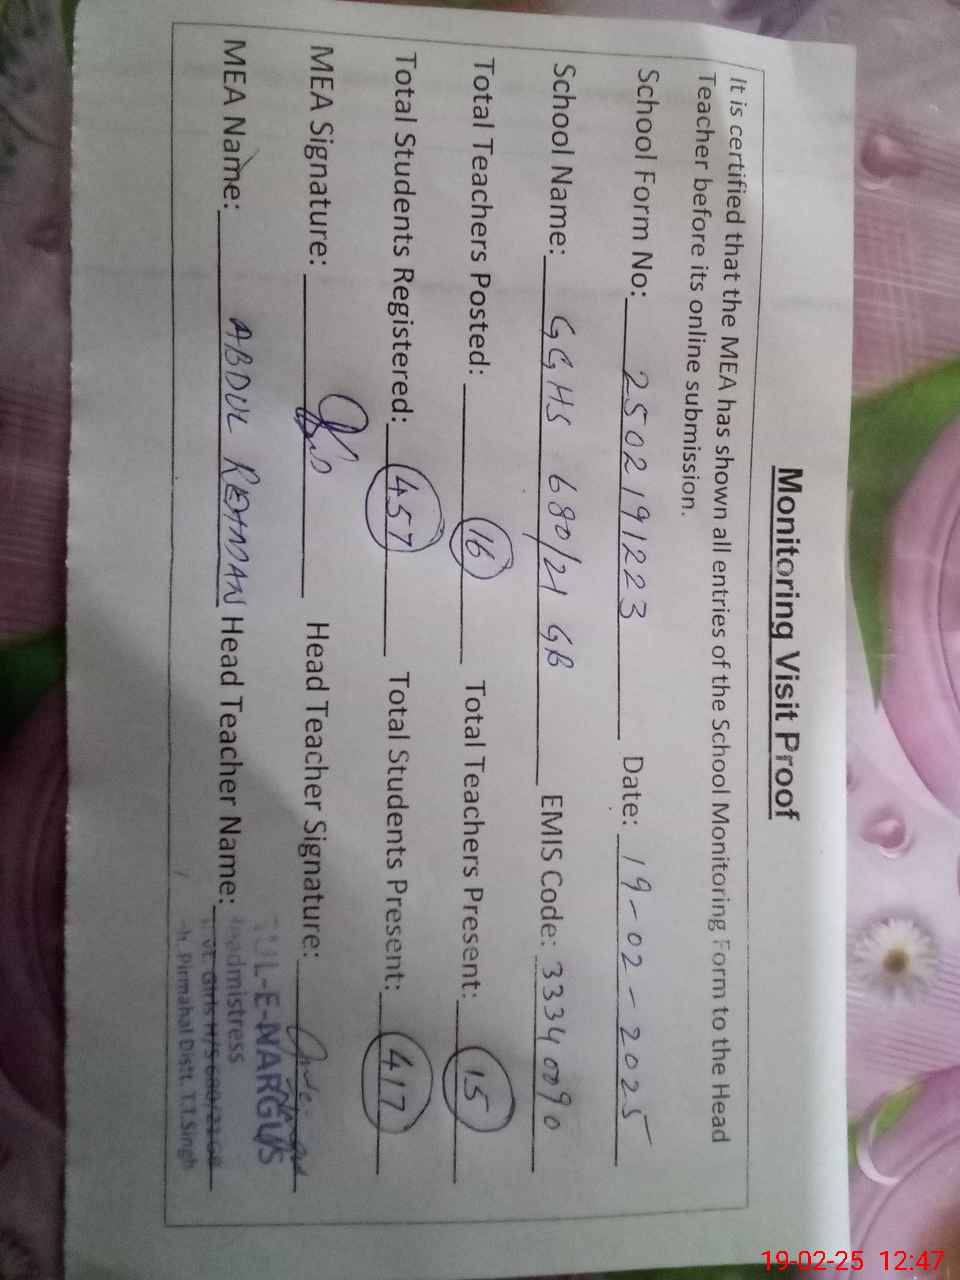 Monitoring Visit Proof
It is certified that the MEA has shown all entries of the School Monitoring Form to the Head
Teacher before its online submission.
School Form No: 2502191223 Date: 19-02-2025
School Name: GGHS 680/21 GB EMIS Code: 33340090
Total Teachers Posted: 16 Total Teachers Present: 15
Total Students Registered: 457 Total Students Present: 417
MEA Signature: Head Teacher Signature:
MEA Name: ABDUL REHMAN Head Teacher Name:
UL-E-NARGUS
Headmistress
Girls H/S 680/21 GB
Pirmahal Distt. T.T.Singh
19-02-25 12:47